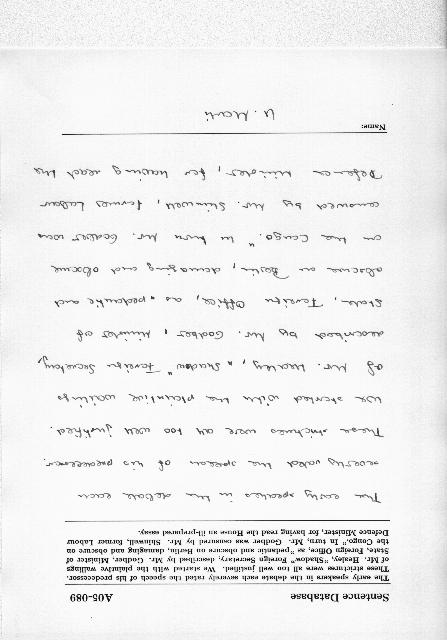 Sentence Database A05-089
The early speakers in the debate each severely rated the speech of his predecessor.
These strictures were all too well justified. We started with the plaintive wailings
of Mr. Healey, "Shadow" Foreign Secretary, described by Mr. Godber, Minister of
State, Foreign Office, as "pedantic and obscure on Berlin, damaging and obscure on
the Congo." In turn, Mr. Godber was censured by Mr. Shinwell, former Labour
Defence Minister, for having read the House an ill-prepared essay.
The early speakers in the debate each
severely rated the speech of his predecessor.
These strictures were all too well justified.
We started with the plaintive wailings
of Mr. Healey, "Shadow" Foreign Secretary,
described by Mr. Godber, Minister of
State, Foreign Office, as "pedantic and
obscure on Berlin, damaging and obscure
on the Congo." In turn Mr. Godber was
censured by Mr. Shinwell, former Labour
Defence Minister, for having read the
Name:
U. Marti